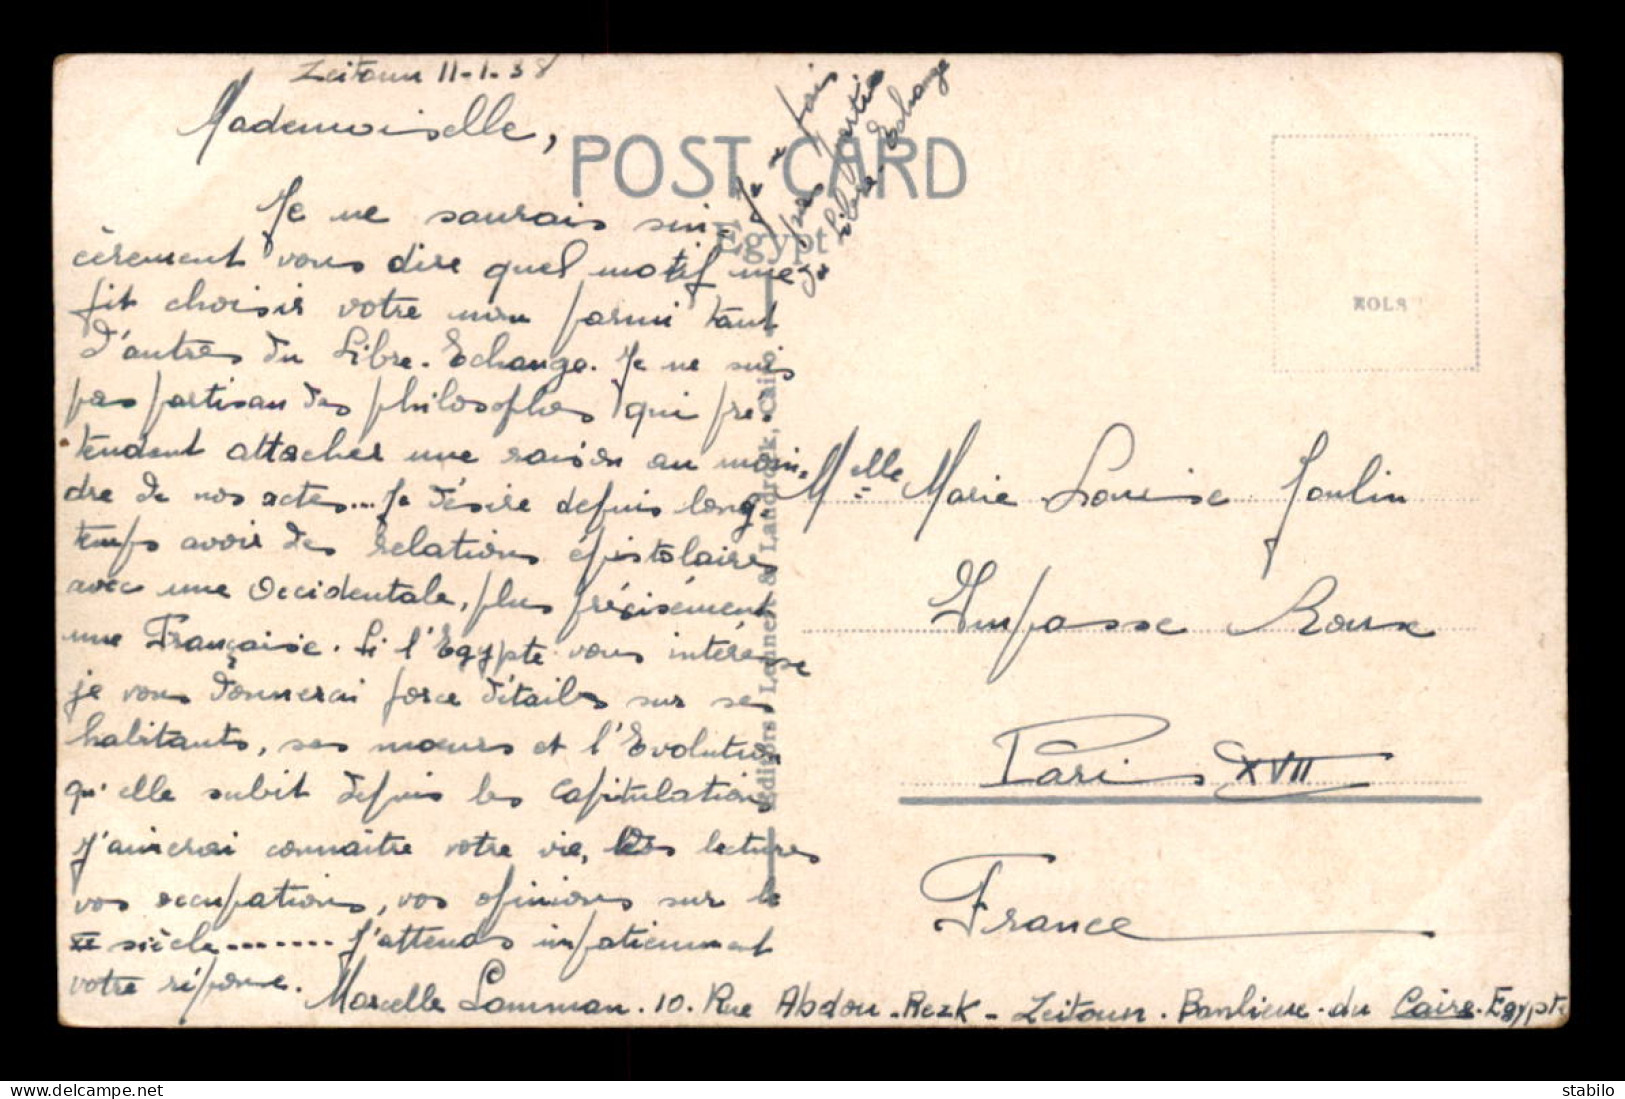 Zeitoun 11-1-38
Mademoiselle,
Je ne saurais sin-
cèrement vous dire quel motif me
fit choisir votre nom parmi tant
d'autres du Libre-Echange. Je ne suis
pas partisan des philosophes qui pré-
tendent attacher une raison au moin-
dre de nos actes... Je désire depuis long-
temps avoir des relations épistolaires
avec une Occidentale, plus précisément
une Française. Si l'Egypte vous intéresse
je vous donnerai force détails sur ses
habitants, ses mœurs et l'Evolution
qu'elle subit depuis les Capitulations
J'aimerai connaître votre vie, vos lectures
vos occupations, vos opinions sur le
XX siècle....... J'attends impatiemment
votre réponse.
Marcelle Lamman. 10. Rue Abdou-Rezk - Zeitoun. Banlieue-du Caire-Egypte
Je ne fais
pas partie
du Libre-Echange
POST CARD
Egypt
Editors Lehnert & Landrock, Cairo
KOLS
Melle Marie Louise Joulin
Impasse Roux
Paris XVII
France
stabilo